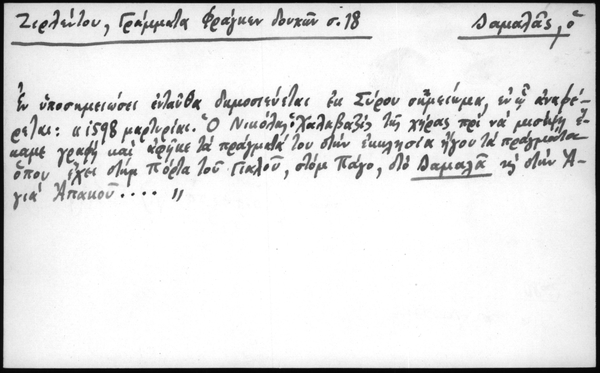 Ζερλέντου, Γράμματα Φράγκων δουκῶν σ. 18
Δαμαλᾶς, ὁ
Ἐν ὑποσημειώσει ἐνταῦθα δημοσιεύεται ἐκ Σύρου σημείωμα, ἐν ᾧ ἀναφέ-
ρεται: κ 1598 μαρτυρίαι. Ὁ Νικόλαος Χαλαβαζῆς τῆς χήρας πρὶ νὰ μισέψη ἔ-
καμε γραφὴ καὶ ἀφῆκε τὰ πράγματά του στὴν ἐκκλησία ἤγου τὰ πράγματα
ὅπου ἔχει στὴμ Πόρτα τοῦ Γιαλοῦ, στὸμ Πάγο, στὸ Δαμαλᾶ κ στὴν Ἁ-
γιὰ Ἀπακοῦ.... "